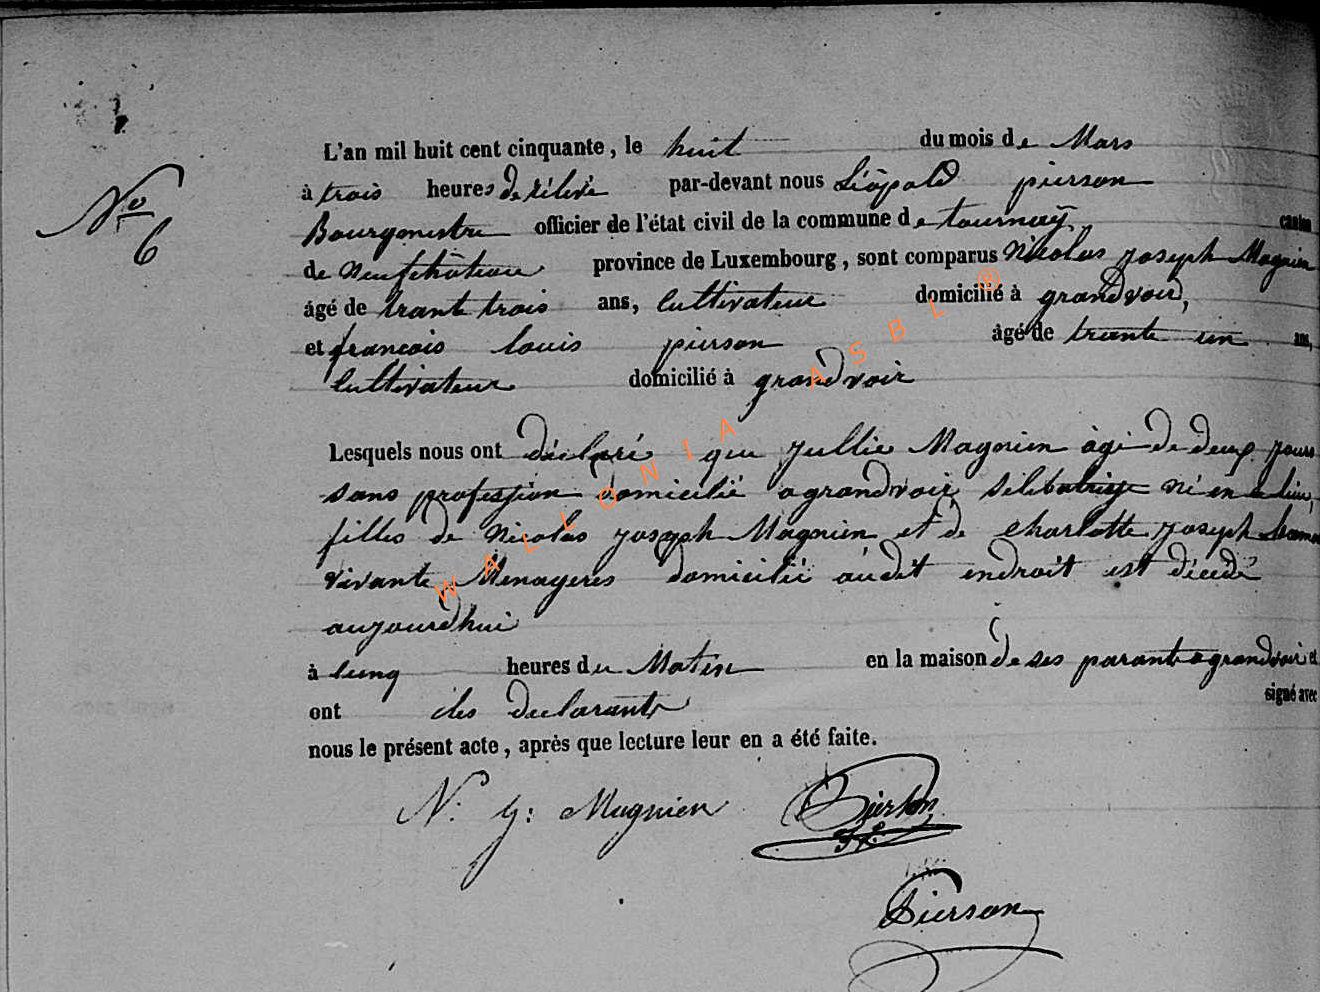 L'an mil huit cent cinquante, le huit du mois de Mars
à trois heures de rélevé par-devant nous Léopold pierson
No 6
Bourgmestre officier de l'état civil de la commune de tournay canton
de Neufchâteau province de Luxembourg, sont comparus Nicolas joseph Magnien
âgé de trante trois ans, Cultivateur domicilié à grandvoir,
et françois louis pierson âgé de trante un ans,
Cultivateur domicilié à grandvoir
Lesquels nous ont déclaré que jullie Magnien âgé de deux jours
sans profession domicilié a grandvoir né en
filles de Nicolas joseph Magnien et de charlotte joseph
vivante Menageres domicilié audit endroit est décédé
aujourdhui
à cinq heures du Matin en la maison de ses parants a grandvoir et
ont les declarants signé avec
nous le présent acte, après que lecture leur en a été faite.
N. J: Magnien Pierson
Pierson
WALLONIA ASBL ®